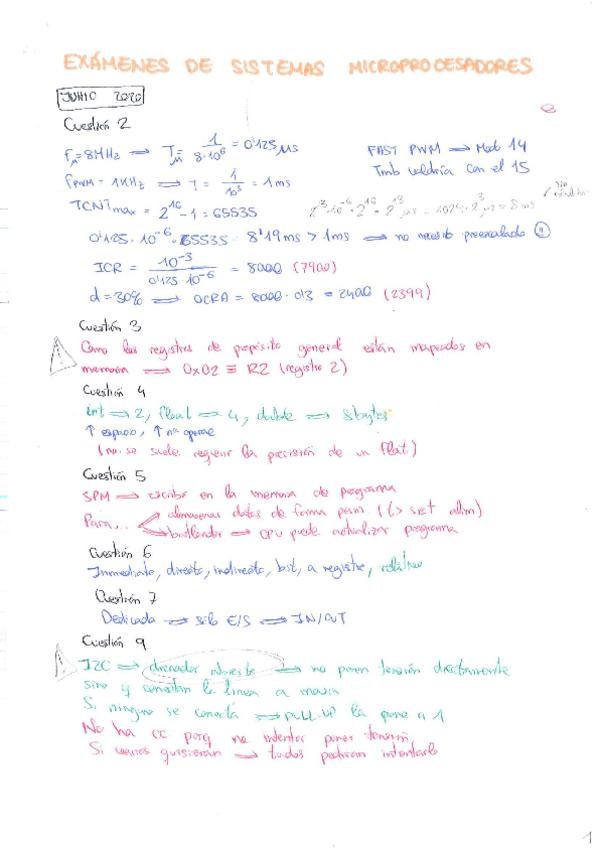 EXÁMENES DE SISTEMAS MICROPROCESADORES
JUNIO 2020
Cuestión 2
= 8MHz ⟹ T = 1 / 8·10^6 = 0'125 μs
FAST PWM ⟹ Mod 14
f PWM = 1KHz ⟹ T = 1 / 10^3 = 1 ms
Tmb valdría con el 15
TCNT max = 2^16 - 1 = 65535
0'125 · 10^-6 · 65535 = 8'19 ms > 1ms ⟹ no necesito preescalado
ICR = 10^-3 / 0'125 · 10^-6 = 8000 (7900)
d = 30% ⟹ OCRA = 8000 · 0'3 = 2400 (2399)
Cuestión 3
Como los registros de propósito general están mapeados en
memoria ⟹ 0x02 ≡ R2 (registro 2)
Cuestión 4
int ⟹ 2, float ⟹ 4, double ⟹ 8 bytes
↑ espacio, ↑ nº
(no se suele requerir la precisión de un float)
Cuestión 5
SPM ⟹ escribir en la memoria de programa
Para... almacenar datos de forma perm (
bootloader ⟹ CPU puede actualizar programa
Cuestión 6
Inmediato, directo, indirecto, bit, a registro, relativo
Cuestión 7
Dedicada ⟹ sólo E/S ⟹ IN/OUT
Cuestión 9
I2C ⟹ drenador abierto ⟹ no ponen tensión directamente
sino q conectan la línea a masa
Si ninguno se conecta ⟹ PULL-UP la pone a 1
No ha cc porq no intentan poner tensión,
Si varios quisieran ⟹ todos podrían intentarlo
1